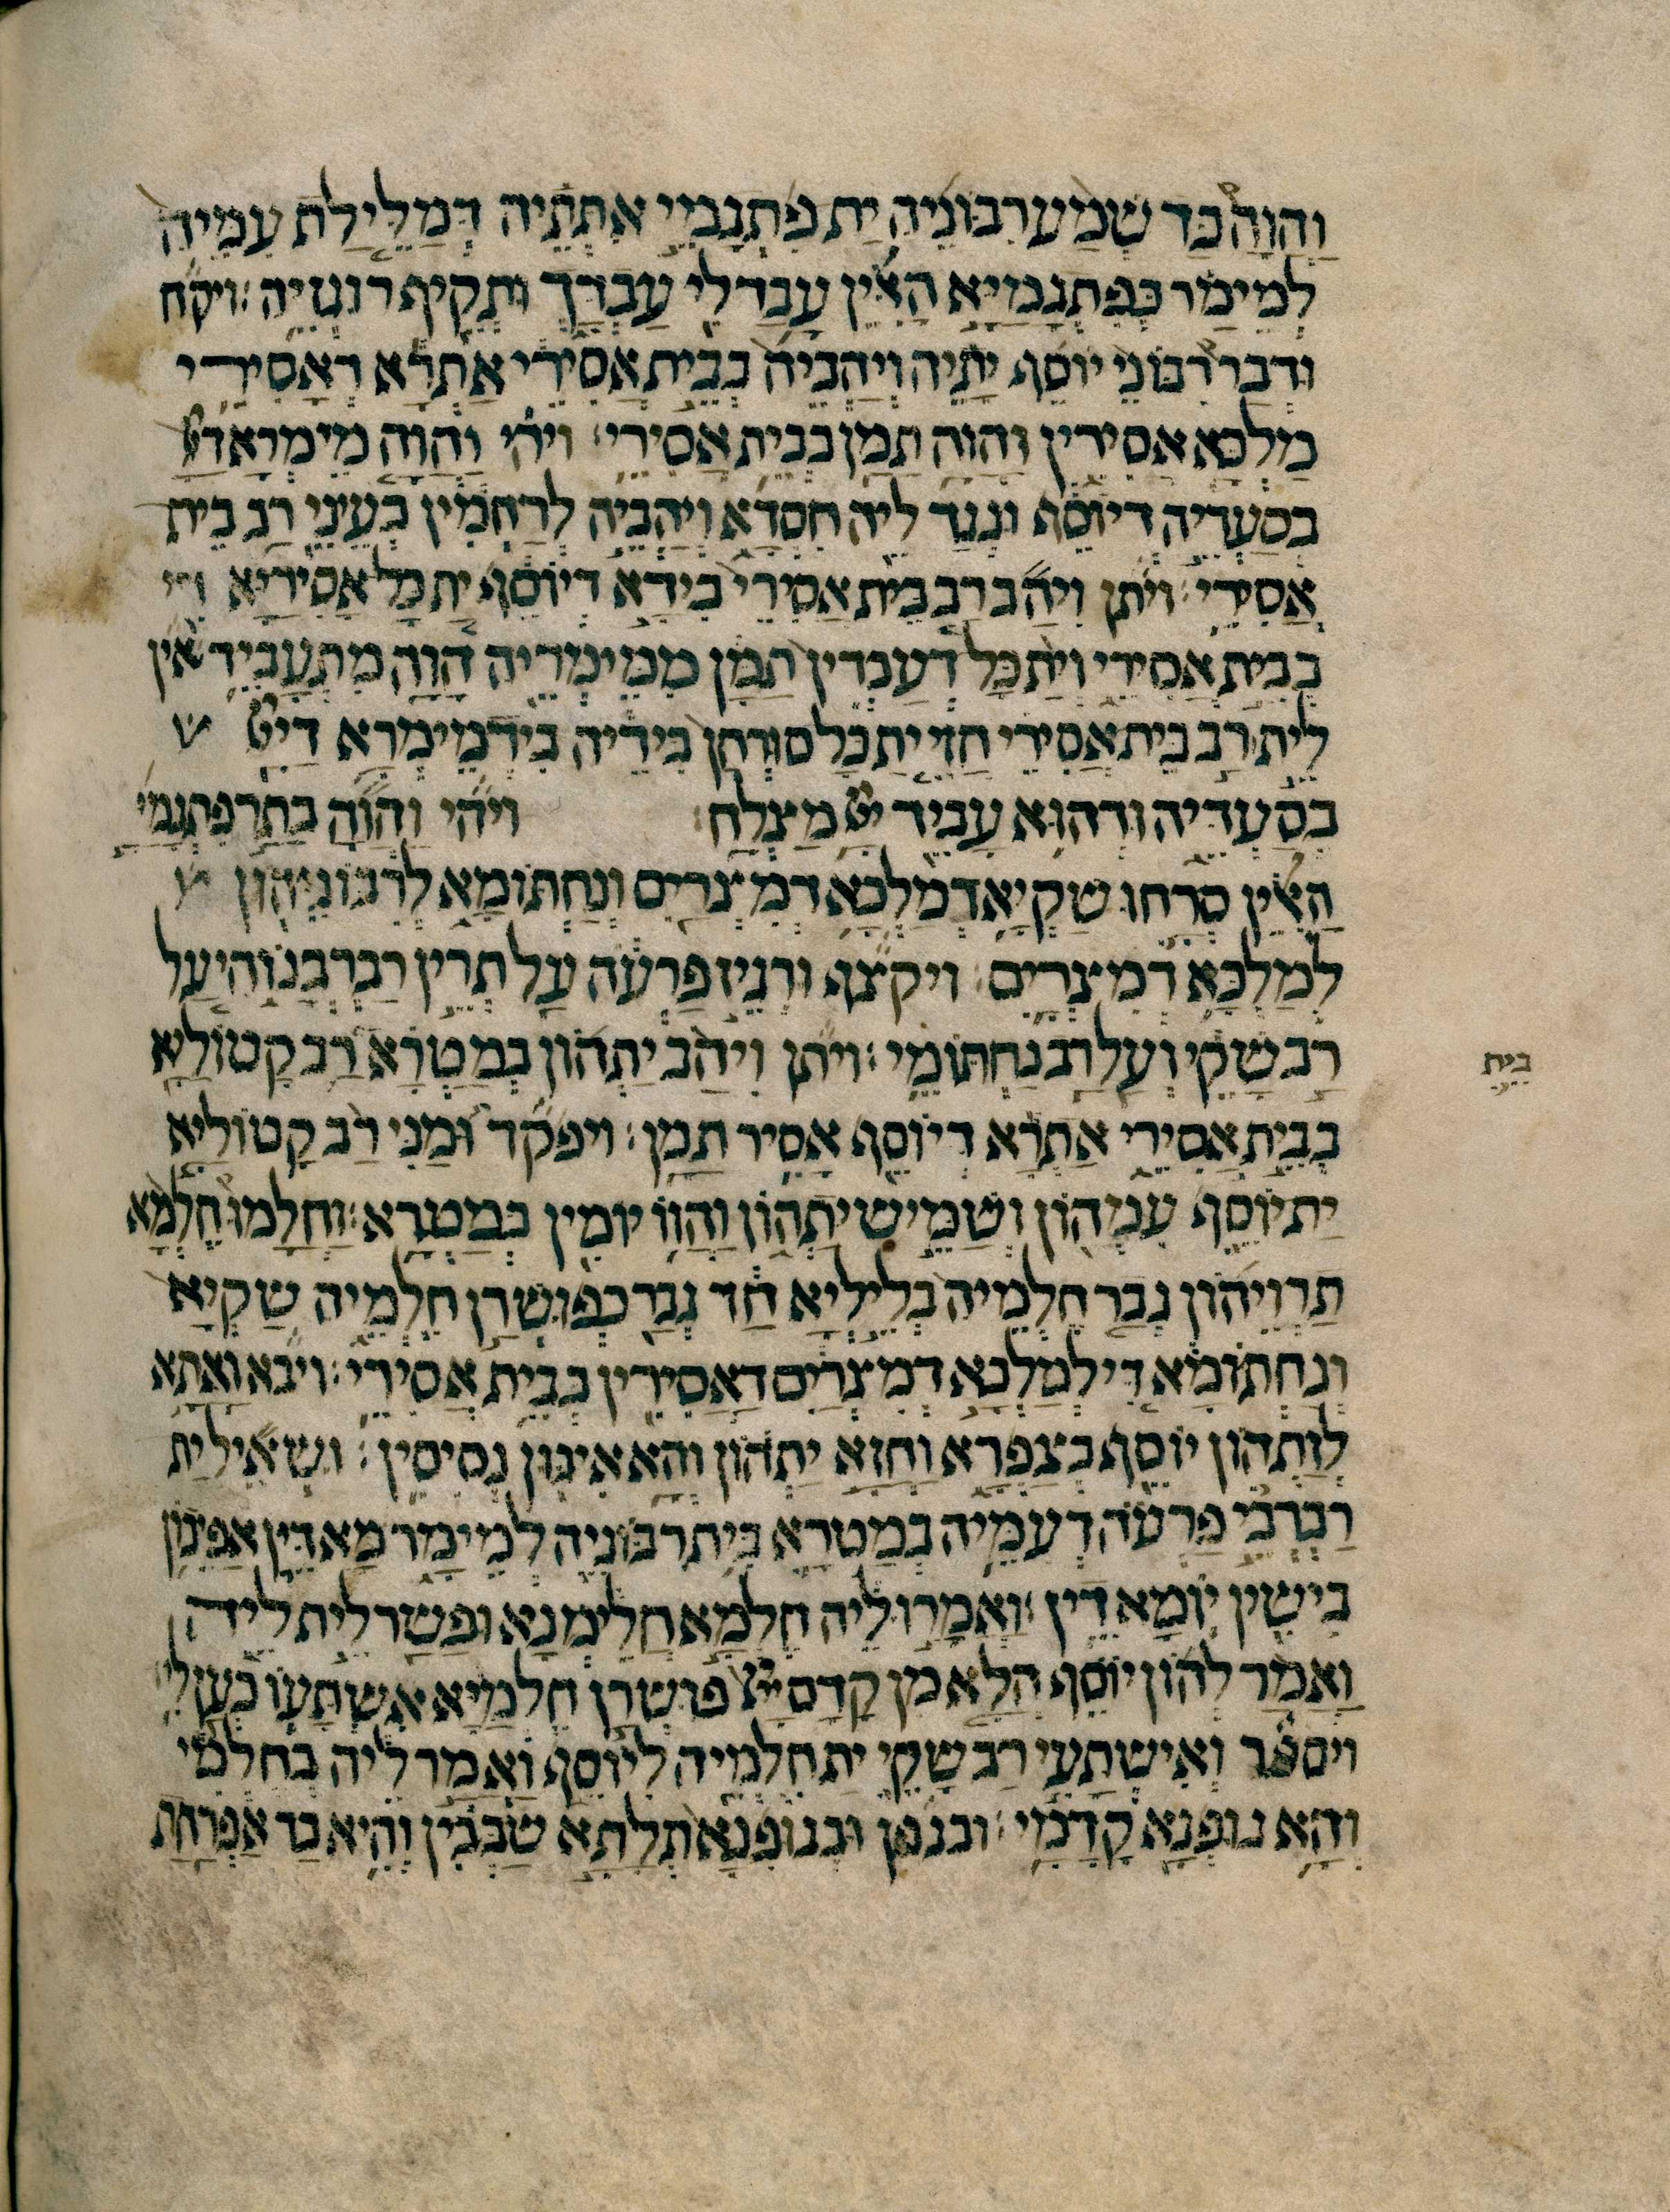 וַהֲוָה כַּד שְׁמַע רִבּוֹנֵיהּ יַת פִּתְגָמֵי אִתְּתֵיהּ דְּמַלֵּילַת עִמֵּיהּ
לְמֵימַר כְּפִתְגָמַיָּא הָאִלֵּין עֲבַד לִי עַבְדָּךְ וּתְקֵיף רוּגְזֵיהּ׃ ויקח
וּדְבַר רִבּוֹנֵי יוֹסֵף יָתֵיהּ וִיהַבֵיהּ בְּבֵית אֲסִירֵי אַתְרָא דְּאָסִירֵי
מַלְכָּא אֲסִירִין וַהֲוָה תַמָּן בְּבֵית אֲסִירֵי׃ ויהי וַהֲוָה מֵימְרָא דַייָ
בְּסַעְדֵּיהּ דְּיוֹסֵף וּנְגַד לֵיהּ חִסְדָּא וִיהַבֵיהּ לְרַחֲמִין בְּעֵינֵי רַב בֵּית
אֲסִירֵי׃ ויתן וִיהַב רַב בֵּית אֲסִירֵי בִּידָא דְּיוֹסֵף יַת כָּל אֲסִירַיָּא דִּי
בְּבֵית אֲסִירֵי וְיַת כָּל דְּעָבְדִין תַּמָּן מִמֵּימְרֵיהּ הֲוָה מִתְעֲבֵיד׃ אין
לֵית רַב בֵּית אֲסִירֵי חָזֵי יַת כָּל סוּרְחָן בִּידֵיהּ בִּדְמֵימְרָא דַייָ
בְּסַעְדֵּיהּ וּדְהוּא עָבֵיד ייָ מַצְלַח׃ ויהי וַהֲוָה בָּתַר פִּתְגָמַיָּ
הָאִלֵּין סְרַחוּ שָׁקְיָא דְּמַלְכָּא דְּמִצְרַיִם וְנַחְתּוֹמָא לְרִבּוֹנֵיהוֹן
לְמַלְכָּא דְּמִצְרָיִם׃ ויקצף וּרְגֵיז פַּרְעֹה עַל תְּרֵין רַבְרְבָנוֹהִי עַל
רַב שָׁקֵי וְעַל רַב נַחְתּוֹמֵי׃ ויתן וִיהַב יַתְהוֹן בְּמַטְּרָא רַב קָטוֹלַיָּא
בית
בְּבֵית אֲסִירֵי אַתְרָא דְּיוֹסֵף אֲסִיר תַּמָּן׃ ויפקד וּמַנִּי רַב קָטוֹלַיָּא
יַת יוֹסֵף עִמְּהוֹן וְשַׁמֵּישׁ יַתְהוֹן וַהֲווֹ יוֹמִין בְּמַטְּרָא׃ וַחֲלַמוּ חֶלְמָא
תַּרְוֵיהוֹן גְּבַר חֶלְמֵיהּ בְּלֵילְיָא חַד גְּבַר כְּפוּשְׁרַן חֶלְמֵיהּ שָׁקְיָא
וְנַחְתּוֹמָא דִּי לְמַלְכָּא דְּמִצְרַיִם דַּאֲסִירִין בְּבֵית אֲסִירֵי׃ ויבא וַאֲתָא
לְוָתְהוֹן יוֹסֵף בְּצַפְרָא וַחֲזָא יַתְהוֹן וְהָא אִינּוּן נְסִיסִין׃ וְשַׁאֵיל יַת
רַבְרְבֵי פַרְעֹה דְּעִמֵּיהּ בְּמַטְּרָא בֵּית רִבּוֹנֵיהּ לְמֵימַר מָא דֵין אַפֵּיכוֹן
בִּישִׁין יוֹמָא דֵין׃ וַאֲמַרוּ לֵיהּ חֶלְמָא חֲלֵימְנָא וּפָשַׁר לֵית לֵיהּ
וַאֲמַר לְהוֹן יוֹסֵף הֲלָא מִן קֳדָם ייָ פּוּשְׁרַן חֶלְמַיָּא אִשְׁתַּעוֹ כְּעַן לִי
ויספר וְאִישְׁתָּעִי רַב שָׁקֵי יַת חֶלְמֵיהּ לְיוֹסֵף וַאֲמַר לֵיהּ בְּחֶלְמִי
וְהָא גוּפְנָא קֳדָמָי׃ ובגפן וּבְגוּפְנָא תְּלָתָא שִׁבְשִׁין וְהִיא כַד אַפְרַחַת